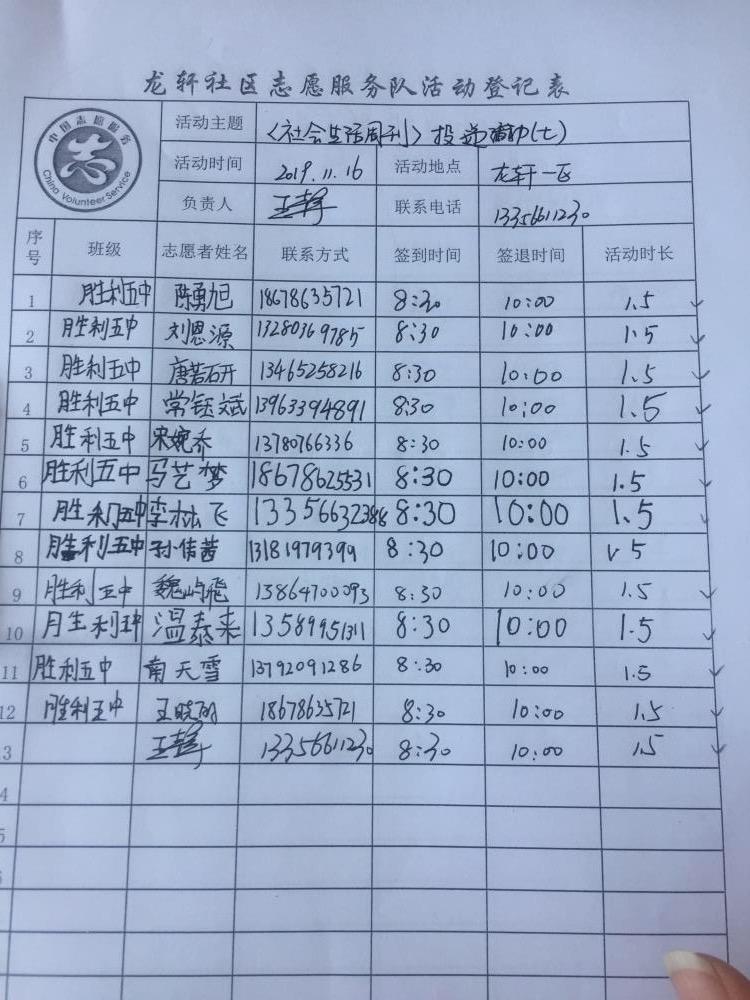 龙轩社区志愿服务队活动登记表
中国志愿服务
志
China Volunteer Service
活动主题 《社会生活周刊》投递 (七)
活动时间 2019.11.16 活动地点 龙轩一区
负责人 联系电话 13356611230
序号 班级 志愿者姓名 联系方式 签到时间 签退时间 活动时长
1 胜利五中 陈勇旭 18678635721 8:30 10:00 1.5 ✓
2 胜利五中 刘恩源 13280369785 8:30 10:00 1.5 ✓
3 胜利五中 唐若研 13465258216 8:30 10:00 1.5 ✓
4 胜利五中 常钰斌 13963394891 8:30 10:00 1.5 ✓
5 胜利五中 宋婉乔 13780766336 8:30 10:00 1.5 ✓
6 胜利五中 马艺梦 18678625531 8:30 10:00 1.5 ✓
7 胜利五中 李林飞 13356632388 8:30 10:00 1.5 ✓
8 胜利五中 孙倩茜 13181979399 8:30 10:00 1.5 ✓
9 胜利五中 魏屿飛 13864700093 8:30 10:00 1.5 ✓
10 胜利五中 温泰来 13589951311 8:30 10:00 1.5 ✓
11 胜利五中 南天雪 13792091286 8:30 10:00 1.5 ✓
12 胜利五中 18678635721 8:30 10:00 1.5 ✓
3 13356611230 8:30 10:00 1.5 ✓
4
5